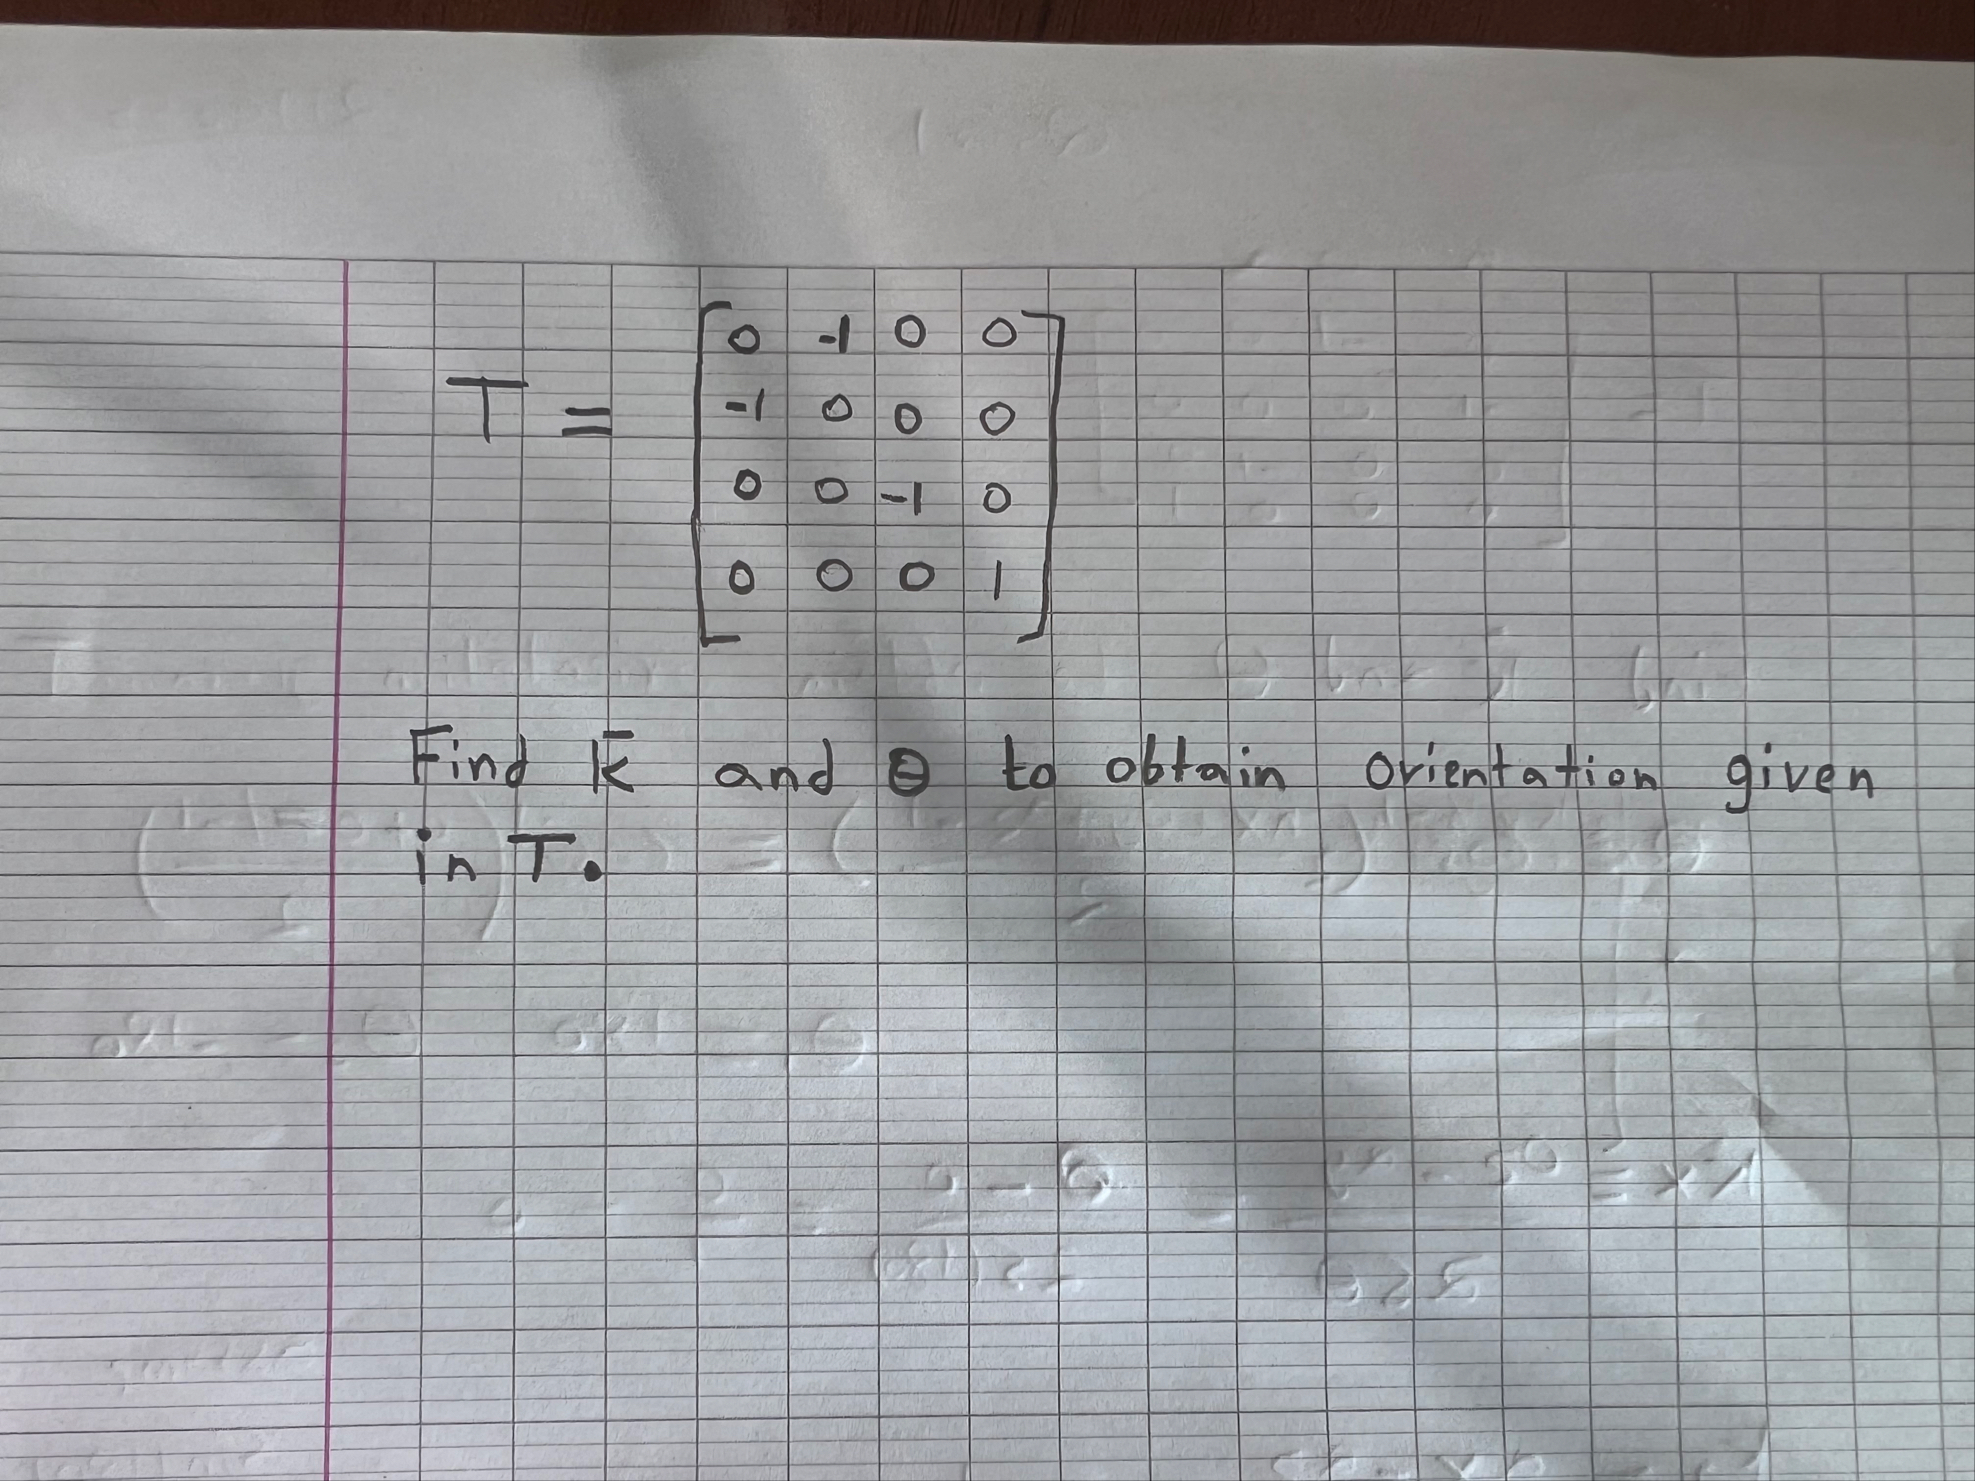 T = [ 0 -1 0 0
-1 0 0 0
0 0 -1 0
0 0 0 1 ]
Find k̄ and θ to obtain orientation given
in T.